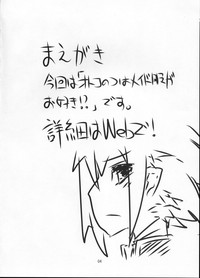 まえがき
今回は「オトコのコはメイド服が
お好き!?」です。
詳細はWebで!